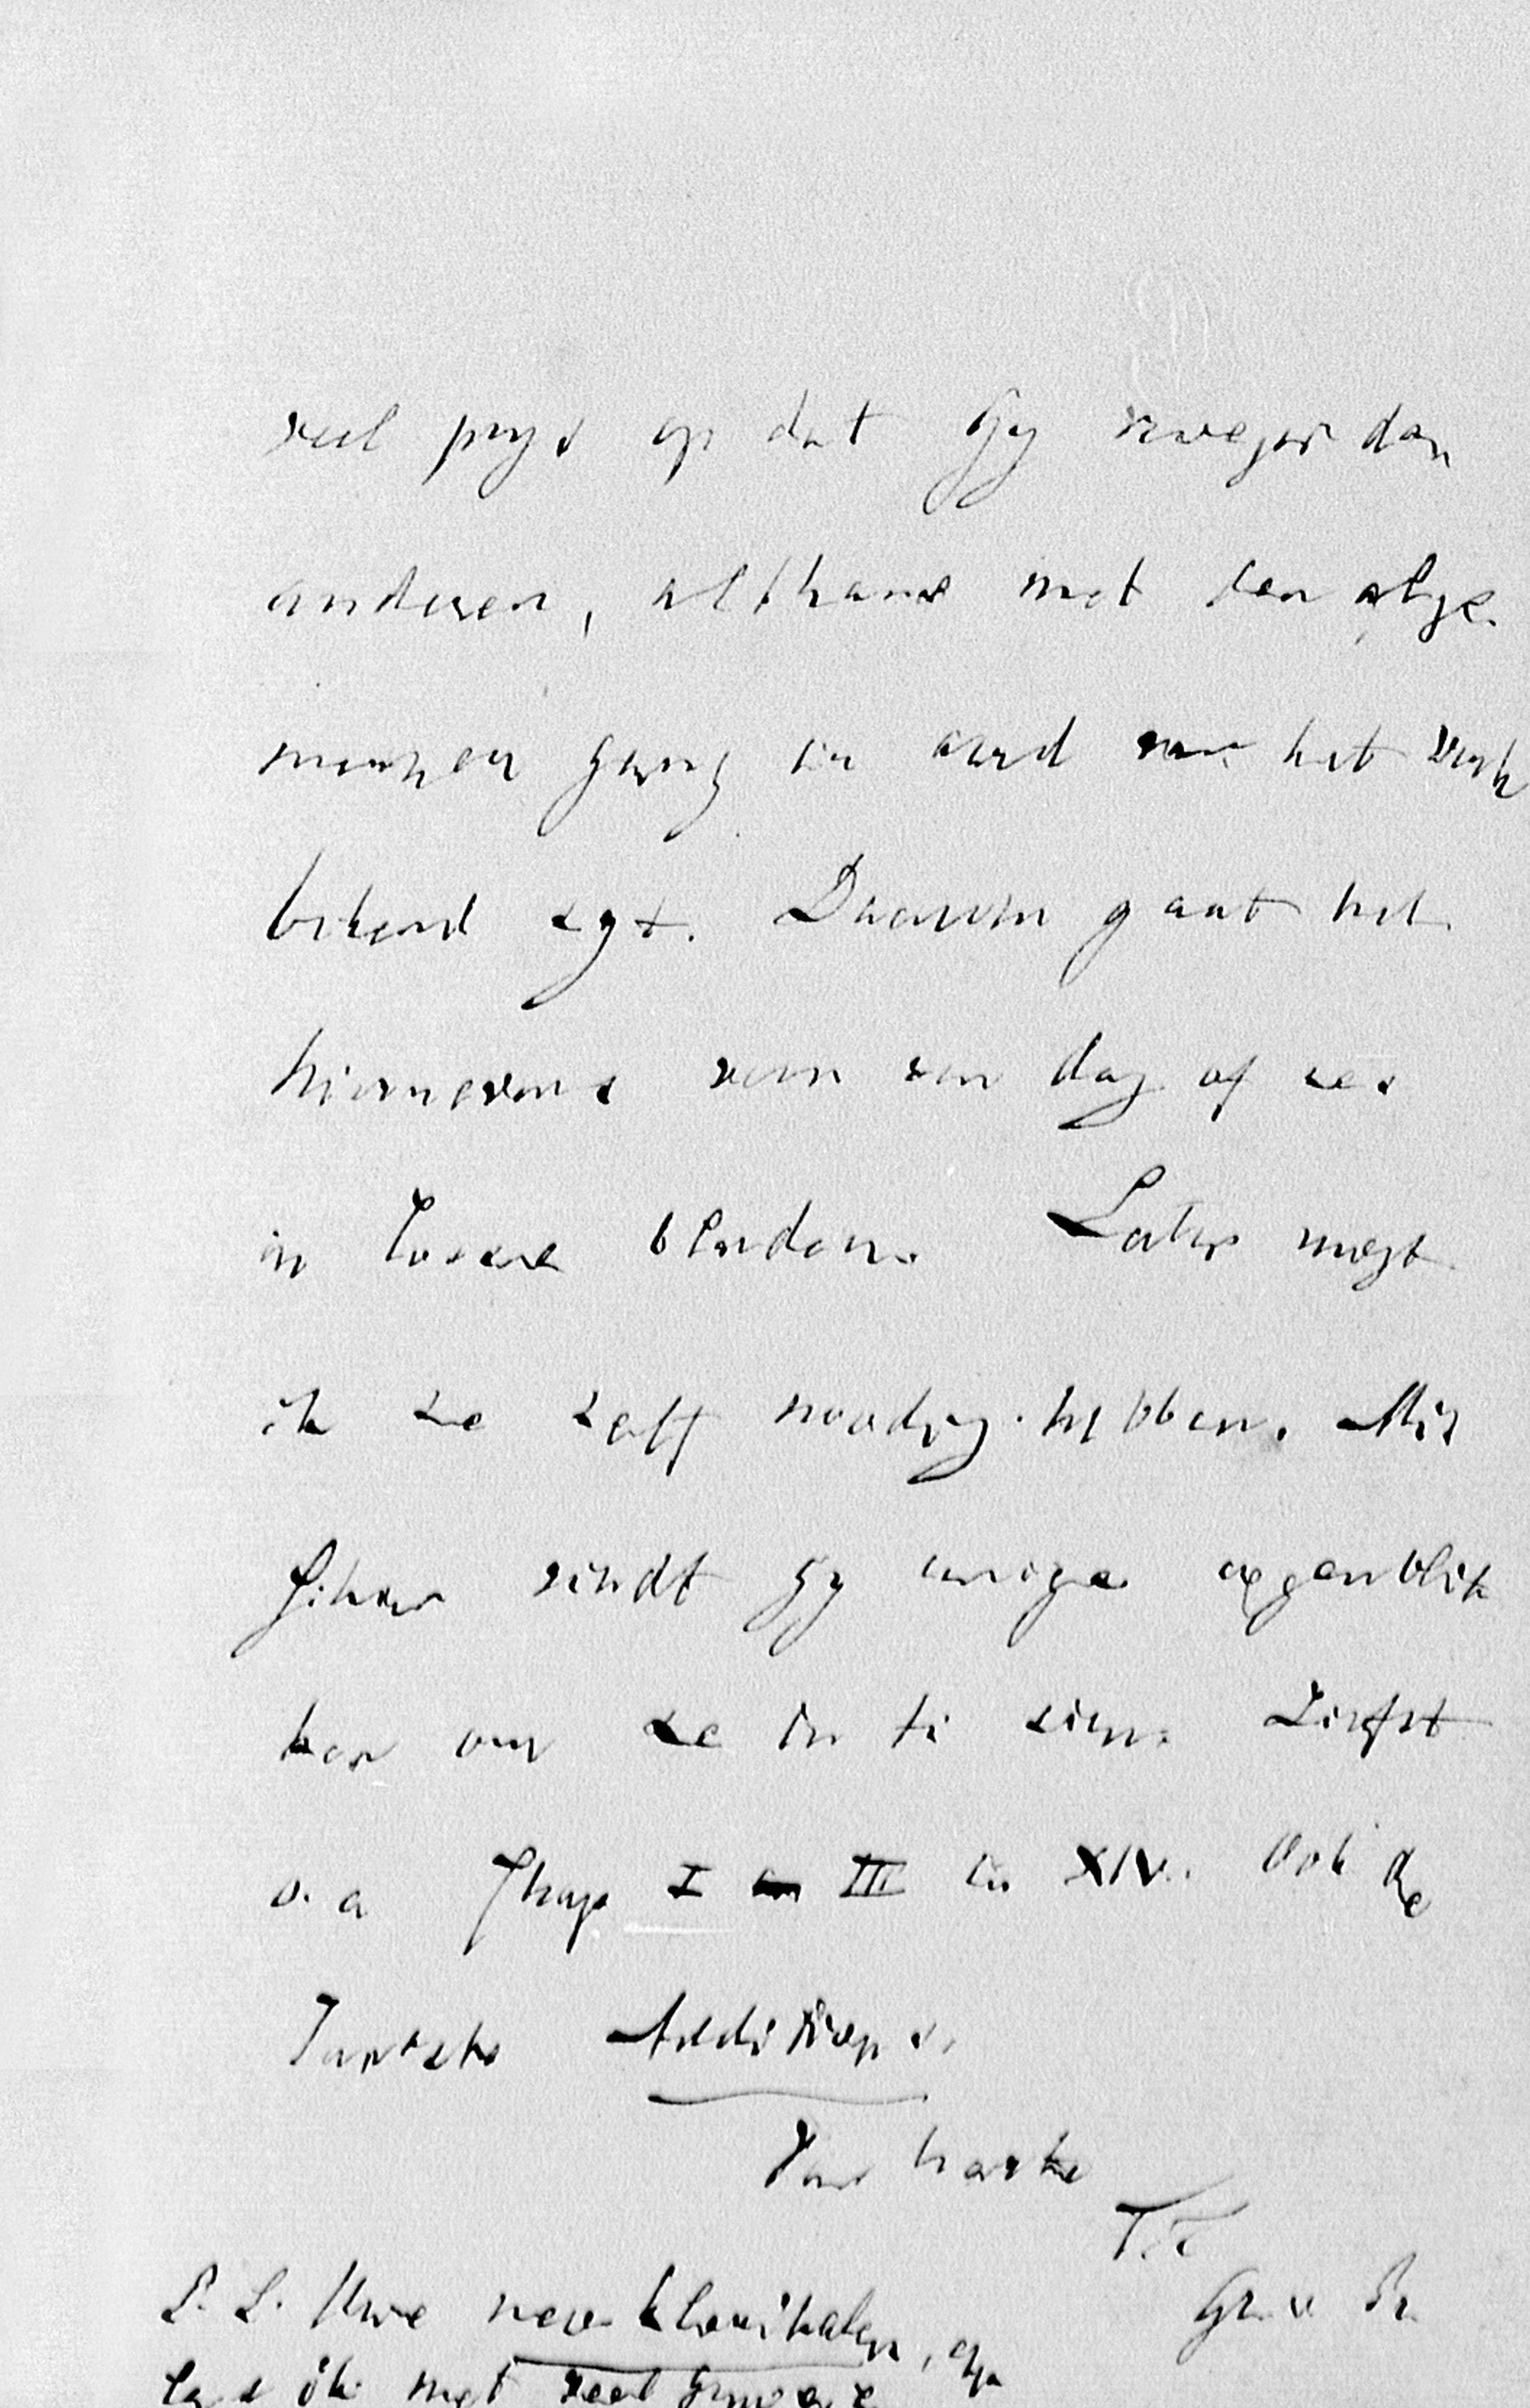 veel prys op dat Gy vroeger dan
anderen, althans met den alge-
meenen gang en aard van het werk
bekend zyt. Daarom gaat het
hiernevens voor een dag of zes
in losse bladen. Later mogt
ik ze zelf noodig hebben. Mis
schien vindt gy eenige oogenblik
ken om ze in te zien. Liefst
o. a Chap I III en XIV. Ook de
laatste Additions.
Van harte
T.t.
Gr. v Pr
P.S. Uwe neo-klerikalen,
las ik met veel genoegen